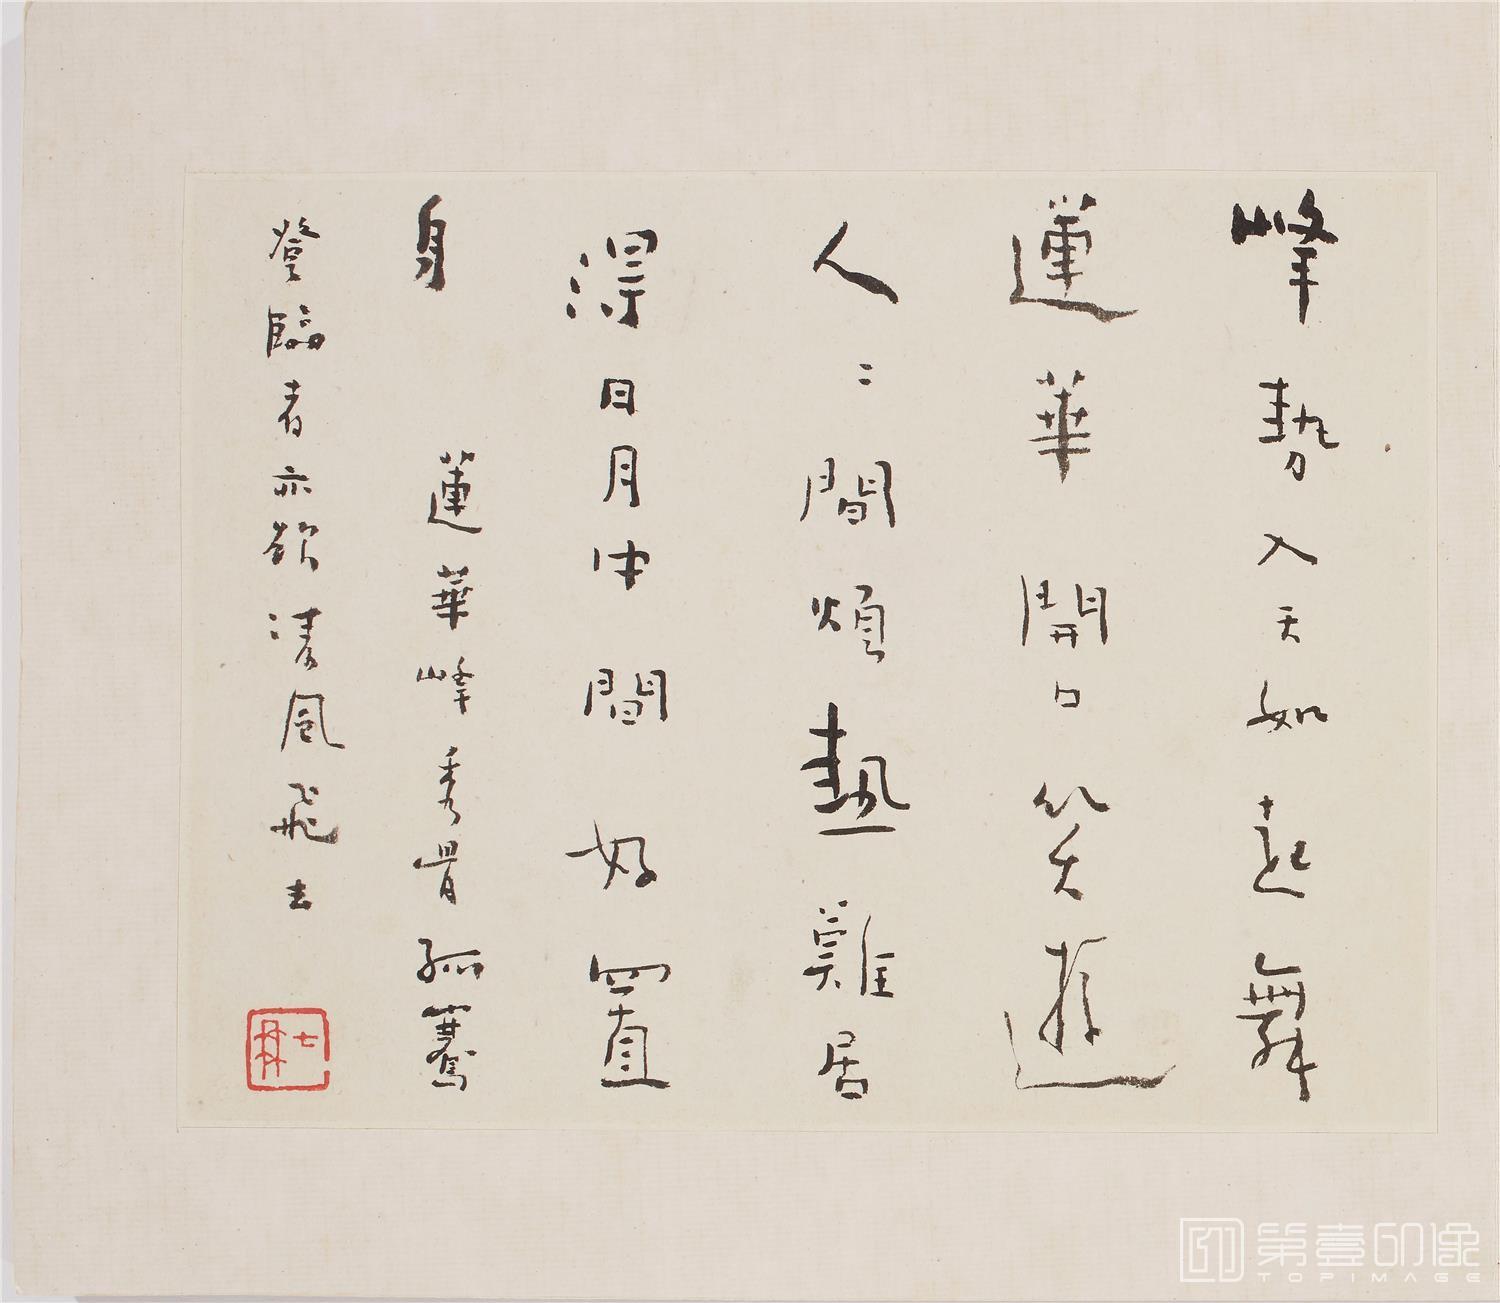 峰勢入天如起舞
蓮華開口笑遊
人〻間煩熱難居
得日月中間好置
身
蓮華峰秀骨孤騫
登臨者亦欲淩風飛去
第壹印像
TOPIMAGE